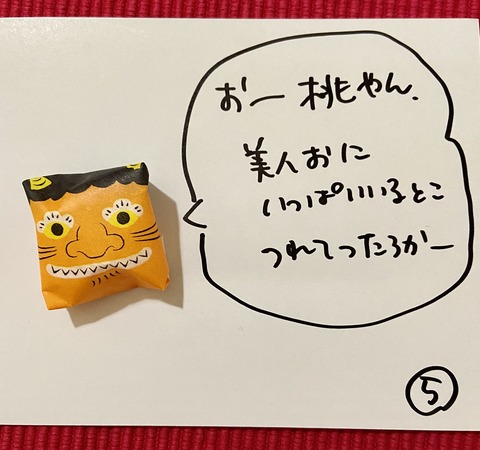 おー桃やん.
美人おに
いっぱいいるとこ
つれてったろかー
⑤